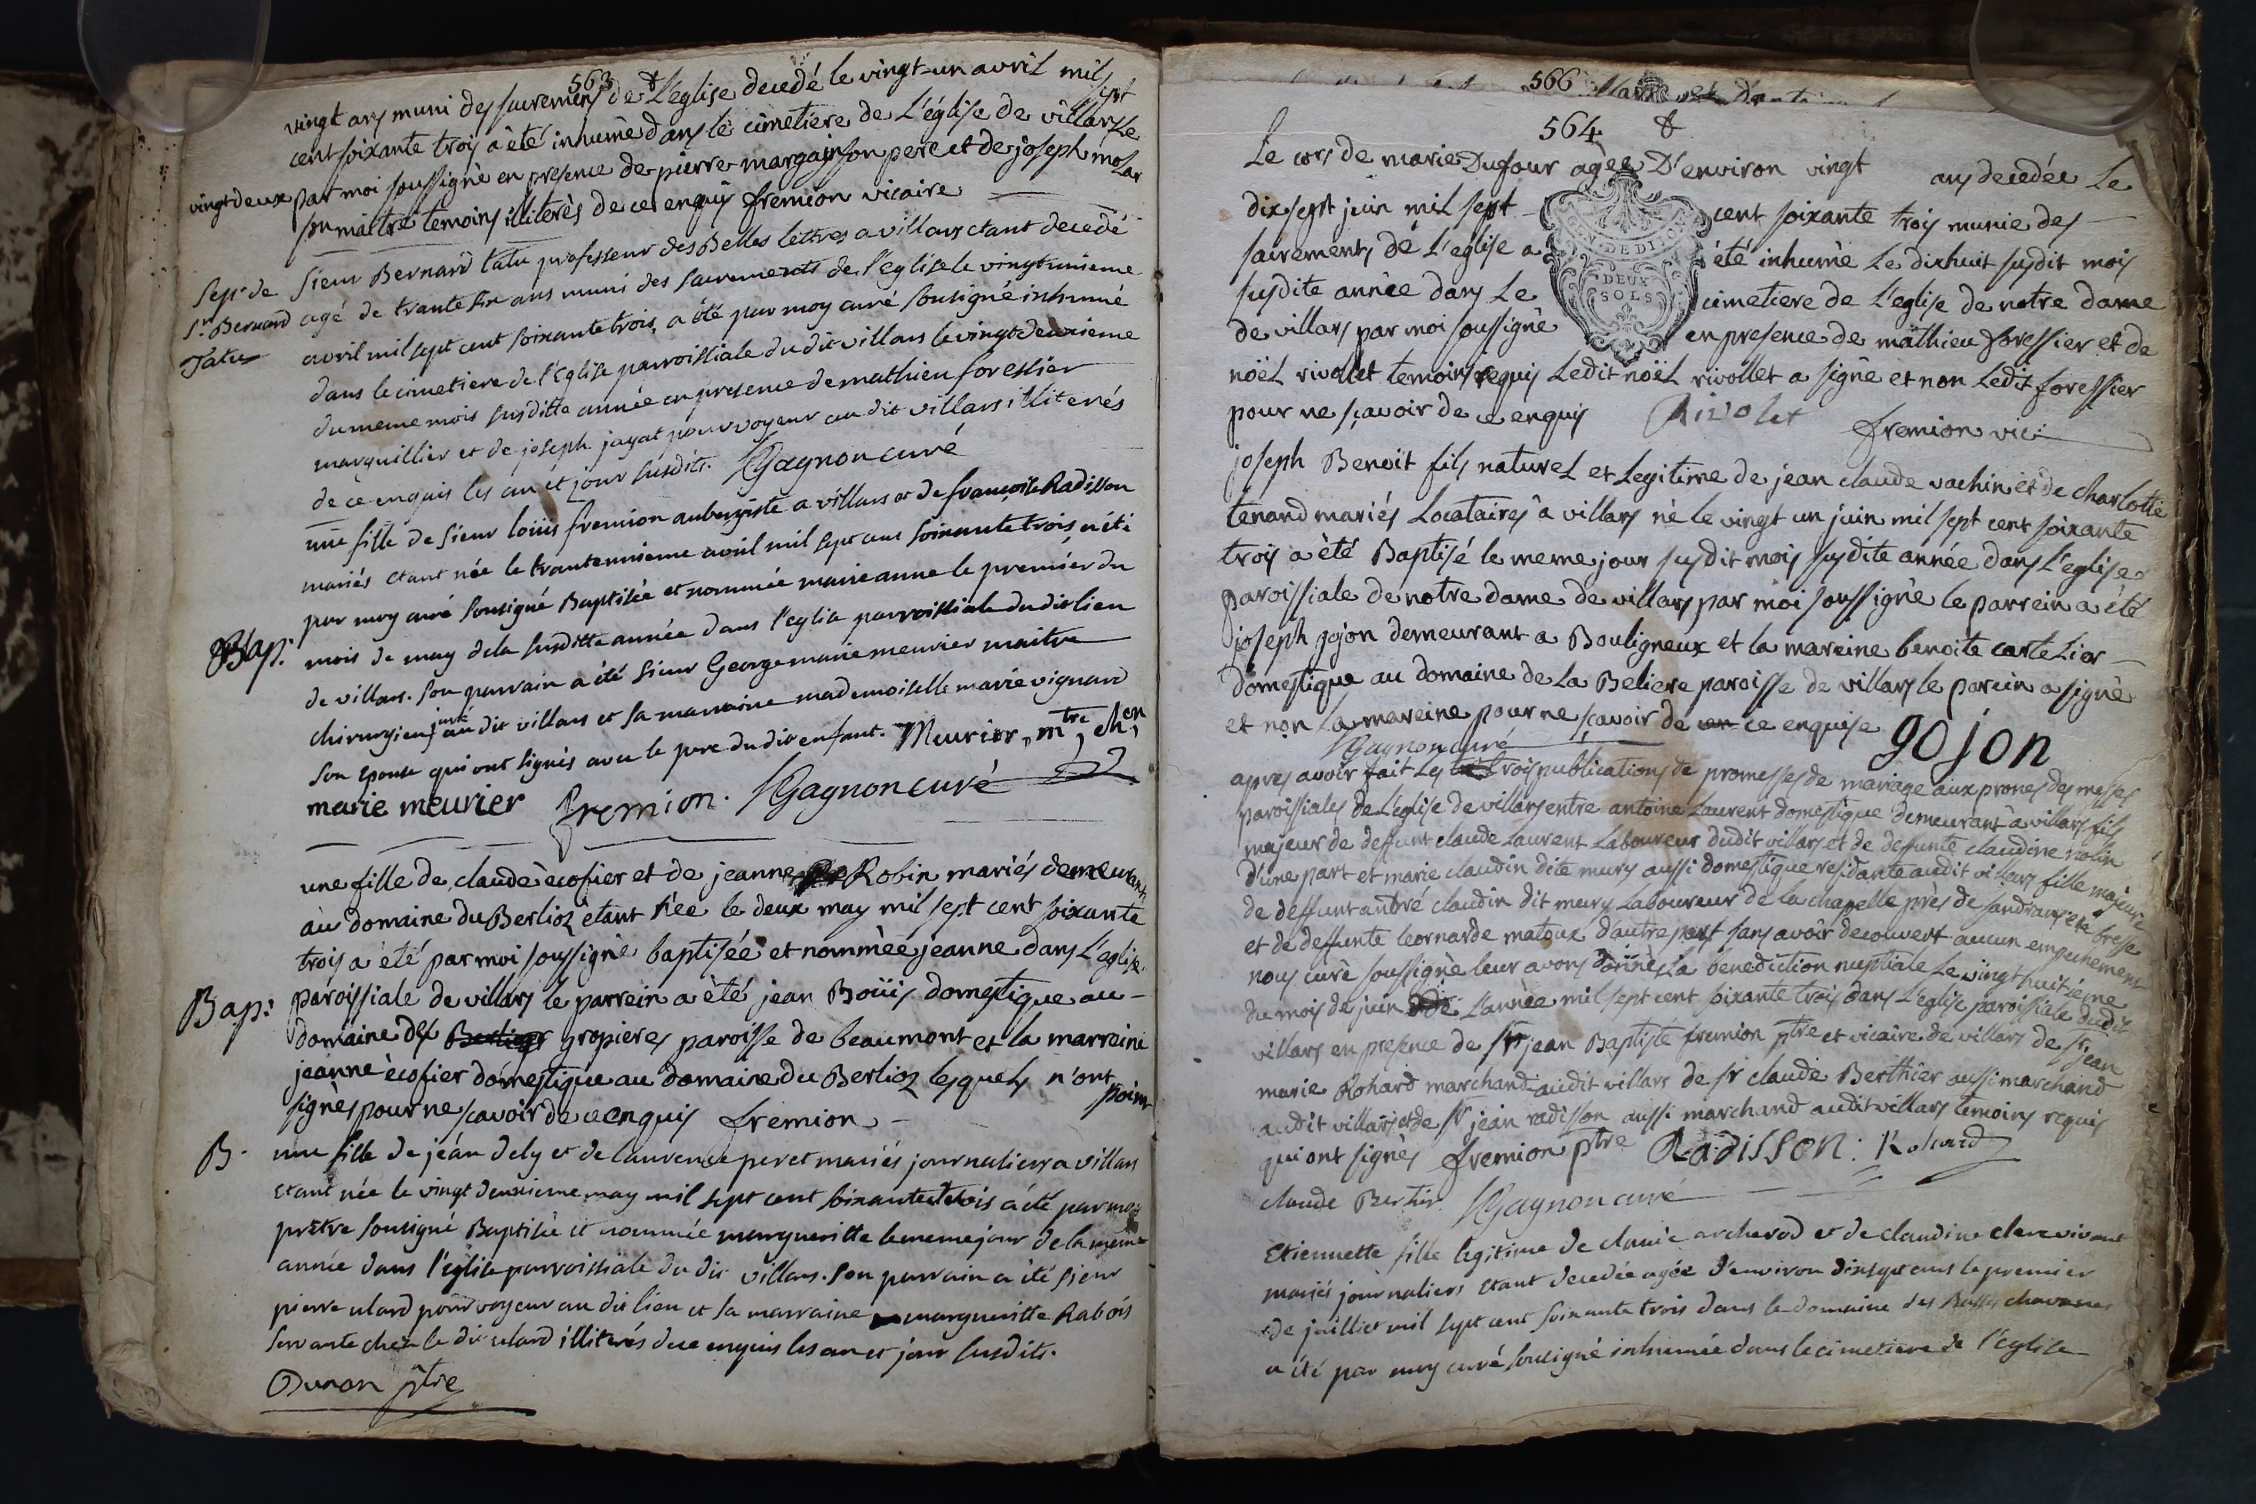 563 &
vingt ans muni des sacremens de L'eglise decedé le vingt-un avril mil sept
cent soixante trois à été inhumè dans le cimetiere de L'église de villars Le
vingt deux par moi soussignè en presence de pierre margain son pere et de joseph molar
son maitre temoins illiterès de ce enquis fremion vicaire
Sepr de
Sr Bernard
Tatu
sieur Bernard tatu professeur des Belles lettres a villars etant decedé
agé de trante six ans muni des sacrements de l'eglise le vingtunieme
avril mil sept cent soixante trois, a été par moy curé sousigné inhumé
dans le cimetiere de l'eglise parroissiale du dit villars le vingtdeuxieme
du meme mois susditte année en presence de mathieu forestier
marguillier et de joseph jayat pourvoyeur au dit villars illiterés
de ce enquis les an et jour susdits. Gagnon curé
Bap:
une fille de sieur loüis fremion aubergiste a villars et de françoise Radisson
mariés etant née le trantennieme avril mil sept cent soixante trois, a été
par moy curé sousigné Baptisée et nommée marie anne le premier du
mois de may dela susditte année dans l'eglise parroissiale du dit lieu
de villars. son parrain a été sieur George marie meurier maitre
chirurgien juré au dit villars et sa marraine mademoiselle marie vignard
son epouse qui ont signés avec le pere du dit enfant. Meurier, mtre chen
marie meurier fremion. Gagnon curé
Bap:
une fille de claude ècofier et de jeanne Robin mariés demeurants
au domaine du Berlioz étant née le deux may mil sept cent soixante
trois a été par moi soussignè baptisée et nommèe jeanne dans L'eglise
paroissiale de villars le parrein a èté jean Boüis domestique au
domaine des Berlioz gropieres paroisse de beaumont et la marreine
jeanne ècofier domestique au domaine du Berlioz lesquels n'ont point
signès pour ne sçavoir de ce enquis fremion
B.
une fille de jéan dely et de laurence peret mariés journaliers a villars
etant née le vingt deuxieme may mil sept cent soixante trois a été par moy
prêtre sousigné Baptisée et nommée margueritte le meme jour de la meme
année dans l'église parroissiale du dit villars. son parrain a été sieur
pierre ulard pourvoyeur au dit lieu et sa marraine margueritte Rabois
servante chez le dit ulard illiterés de ce enquis les an et jour susdits.
Duran ptre
566
564 &
Le cors de marie Dufour agèe D'environ vingt ans decedée Le
dix sept juin mil sept cent soixante trois munie des
sacrements de L'eglise a été inhumè Le dixhuit susdit mois
susdite année dans Le cimetiere de L'eglise de notre dame
de villars par moi soussignè en presence de mathieu foressier et de
noël rivollet temoins requis Ledit noël rivollet a signè et non Ledit foressier
pour ne sçavoir de ce enquis Rivolet fremion vic:
DE DIJON
DEUX
SOLS
joseph Benoit fils naturel et Legitime de jean claude vachin et de charlotte
tenand mariés Locataires à villars né le vingt un juin mil sept cent soixante
trois a èté Baptisé le meme jour susdit mois susdite année dans L'eglise
paroissiale de notre dame de villars par moi soussignè le parrein a été
joseph gojon demeurant a Bouligneux et la mareine benoite cartelier
domestique au domaine de La Beliere paroisse de villars le parein a signè
et non La mareine pour ne sçavoir de ce enquise gojon
Gagnon curé
apres avoir fait Les trois publications de promesses de mariage aux prones des messes
paroissiales de L'eglise de villars entre antoine Laurent domestique demeurant à villars fils
majeur de deffunt claude Laurent Laboureur dudit villars et de deffunte claudine nolin
d'une part et marie claudin dite mury aussi domestique residante audit villars fille majeure
de deffunt andré claudin dit mury Laboureur de la chapelle près de sandrans en bresse
et de deffunte leonarde matoux d'autre part sans avoir decouvert aucun empechement
nous curè soussignè leur avons donnè La benediction nuptiale Le vingt huitieme
du mois de juin L'annèe mil sept cent soixante trois dans L'eglise paroissiale dudit
villars en presence de sr jean Baptiste fremion ptre et vicaire de villars de sr jean
marie Rohard marchand audit villars de sr claude Berthier aussi marchand
audit villars et de sr jean radisson aussi marchand audit villars temoins requis
qui ont signès fremion ptre RADISSON: Rohard
claude Bertier Gagnon curé
Etiennette fille legitime de archerod et de claudine clerc vivant
mariés journaliers etant decedée agée d'environ dixsept ans le premier
de juilliet mil sept cent soixante trois dans le domaine des Basses chavanes
a été par moy curé sousigné inhumée dans le cimetiere de l'eglise